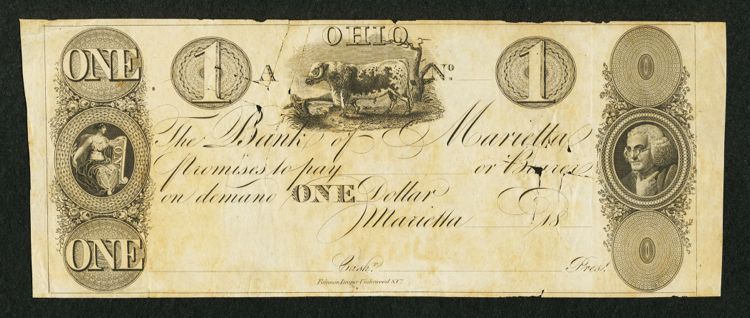 OHIO
ONE 1 A No. 1
The Bank of Marietta
Promises to pay or Bearer
on demand ONE Dollar
Marietta 18
ONE
Cashr. Prest.